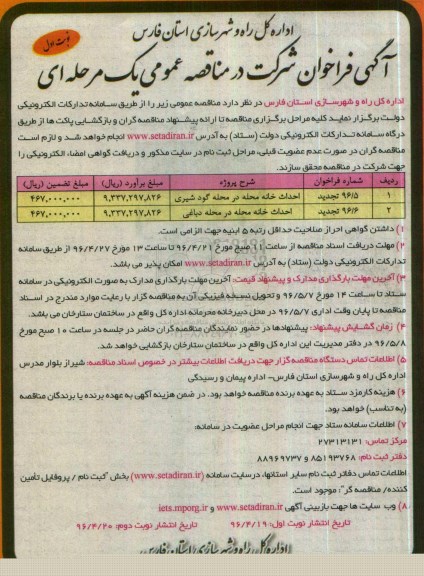 اداره کل راه و شهرسازی استان فارس
نوبت اول
آگهی فراخوان شرکت در مناقصه عمومی یک مرحله ای
اداره کل راه و شهرسازی استان فارس در نظر دارد مناقصه عمومی زیر را از طریق سامانه تدارکات الکترونیکی
دولت برگزار نماید کلیه مراحل برگزاری مناقصه تا ارائه پیشنهاد مناقصه گران و بازگشایی پاکت ها از طریق
درگاه سامانه تدارکات الکترونیکی دولت (ستاد) به آدرس www.setadiran.ir انجام خواهد شد و لازم است
مناقصه گران در صورت عدم عضویت قبلی، مراحل ثبت نام در سایت مذکور و دریافت گواهی امضاء الکترونیکی را
جهت شرکت در مناقصه محقق سازند.
ردیف شماره فراخوان شرح پروژه مبلغ برآورد (ریال) مبلغ تضمین (ریال)
۱ ۹۶/۵ تجدید احداث خانه محله در محله گود شیری ۹,۲۳۷,۲۹۷,۸۲۶ ۴۶۷,۰۰۰,۰۰۰
۲ ۹۶/۶ تجدید احداث خانه محله در محله دباغی ۹,۲۳۷,۲۹۷,۸۲۶ ۴۶۷,۰۰۰,۰۰۰
۱) داشتن گواهی احراز صلاحیت حداقل رتبه ۵ ابنیه جهت الزامی است.
۲) مهلت دریافت اسناد مناقصه از ساعت ۱۱ صبح مورخ ۹۶/۴/۲۱ تا ساعت ۱۳ مورخ ۹۶/۴/۲۷ از طریق سامانه
تدارکات الکترونیکی دولت (ستاد) به آدرس www.setadiran.ir امکان پذیر می باشد.
۳) آخرین مهلت بارگذاری مدارک و پیشنهاد قیمت: آخرین مهلت بارگذاری مدارک به صورت الکترونیکی در سامانه
ستاد تا ساعت ۱۴ مورخ ۹۶/۵/۷ و تحویل نسخه فیزیکی آن به مناقصه گزار با رعایت موارد مندرج در اسناد
مناقصه تا پایان وقت اداری ۹۶/۵/۷ در محل دبیرخانه محرمانه اداره کل واقع در ساختمان ستارخان می باشد.
۴) زمان گشایش پیشنهاد: پیشنهادها در حضور نمایندگان مناقصه گران حاضر در جلسه در ساعت ۱۰ صبح مورخ
۹۶/۵/۸ در دفتر مدیریت این اداره کل واقع در ساختمان ستارخان بازگشایی خواهد شد.
۵) اطلاعات تماس دستگاه مناقصه گزار جهت دریافت اطلاعات بیشتر در خصوص اسناد مناقصه: شیراز بلوار مدرس
اداره کل راه و شهرسازی استان فارس- اداره پیمان و رسیدگی
۶) هزینه کارمزد ستاد به عهده برنده مناقصه خواهد بود. در ضمن هزینه آگهی به عهده برنده یا برندگان مناقصه
(به تناسب) خواهد بود.
۷) اطلاعات سامانه ستاد جهت انجام مراحل عضویت در سامانه:
مرکز تماس: ۲۷۳۱۳۱۳۱
دفتر ثبت نام: ۸۵۱۹۳۷۶۸ و ۸۸۹۶۹۷۳۷
اطلاعات تماس دفاتر ثبت نام سایر استانها، درسایت سامانه (www.setadiran.ir) بخش "ثبت نام / پروفایل تامین
کننده/ مناقصه گر": موجود است.
۸) وب سایت ها جهت بازبینی آگهی www.setadiran.ir و iets.mporg.ir
تاریخ انتشار نوبت اول: ۹۶/۴/۱۹ تاریخ انتشار نوبت دوم: ۹۶/۴/۲۰
اداره کل راه و شهرسازی استان فارس